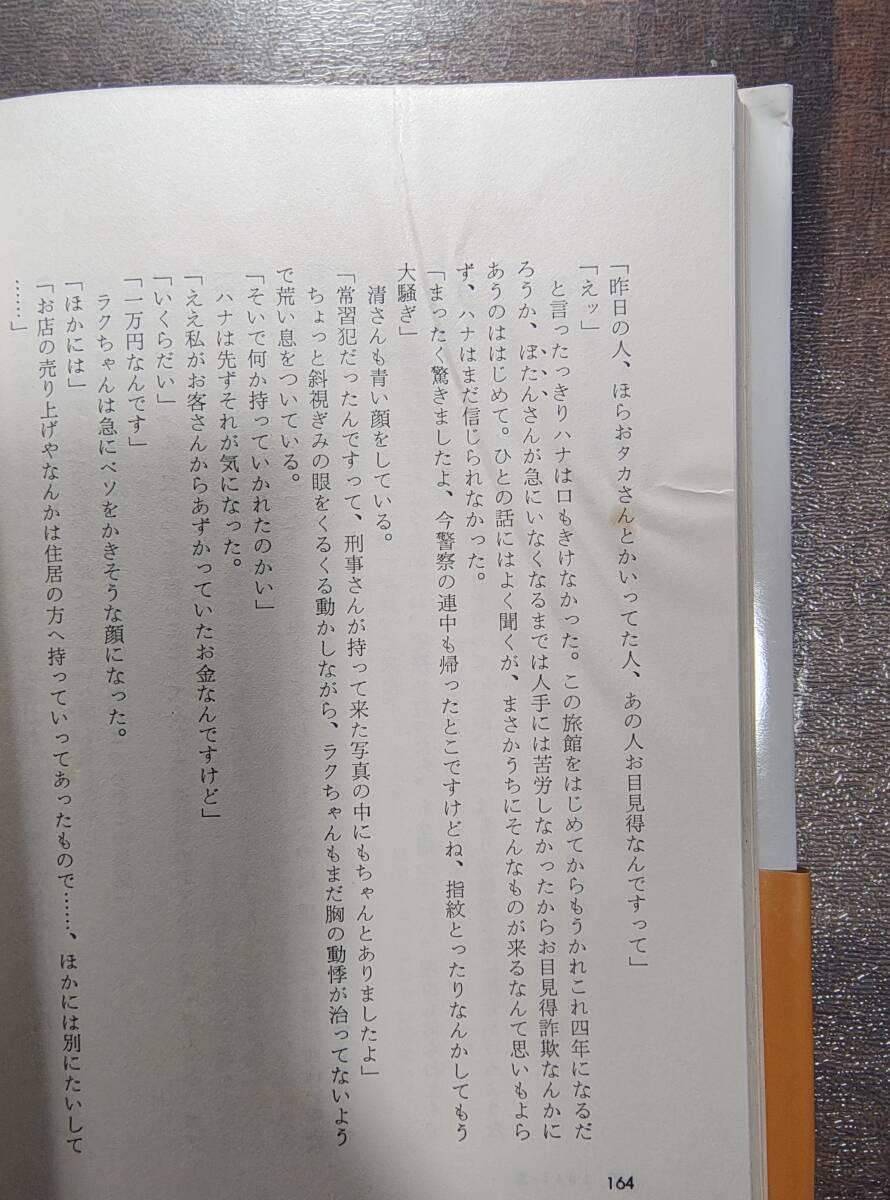 「昨日の人、ほらおタカさんとかいってた人、あの人お目見得なんですって」
「えッ」
と言ったっきりハナは口もきけなかった。この旅館をはじめてからもうかれこれ四年になるだ
ろうか、ぼたんさんが急にいなくなるまでは人手には苦労しなかったからお目見得詐欺なんかに
あうのははじめて。ひとの話にはよく聞くが、まさかうちにそんなものが来るなんて思いもよら
ず、ハナはまだ信じられなかった。
「まったく驚きましたよ、今警察の連中も帰ったとこですけどね、指紋とったりなんかしてもう
大騒ぎ」
清さんも青い顔をしている。
「常習犯だったんですって、刑事さんが持って来た写真の中にもちゃんとありましたよ」
ちょっと斜視ぎみの眼をくるくる動かしながら、ラクちゃんもまだ胸の動悸が治ってないよう
で荒い息をついている。
「そいで何か持っていかれたのかい」
ハナは先ずそれが気になった。
「ええ私がお客さんからあずかっていたお金なんですけど」
「いくらだい」
「一万円なんです」
ラクちゃんは急にベソをかきそうな顔になった。
「ほかには」
「お店の売り上げやなんかは住居の方へ持っていってあったもので……、ほかには別にたいして
……」
164